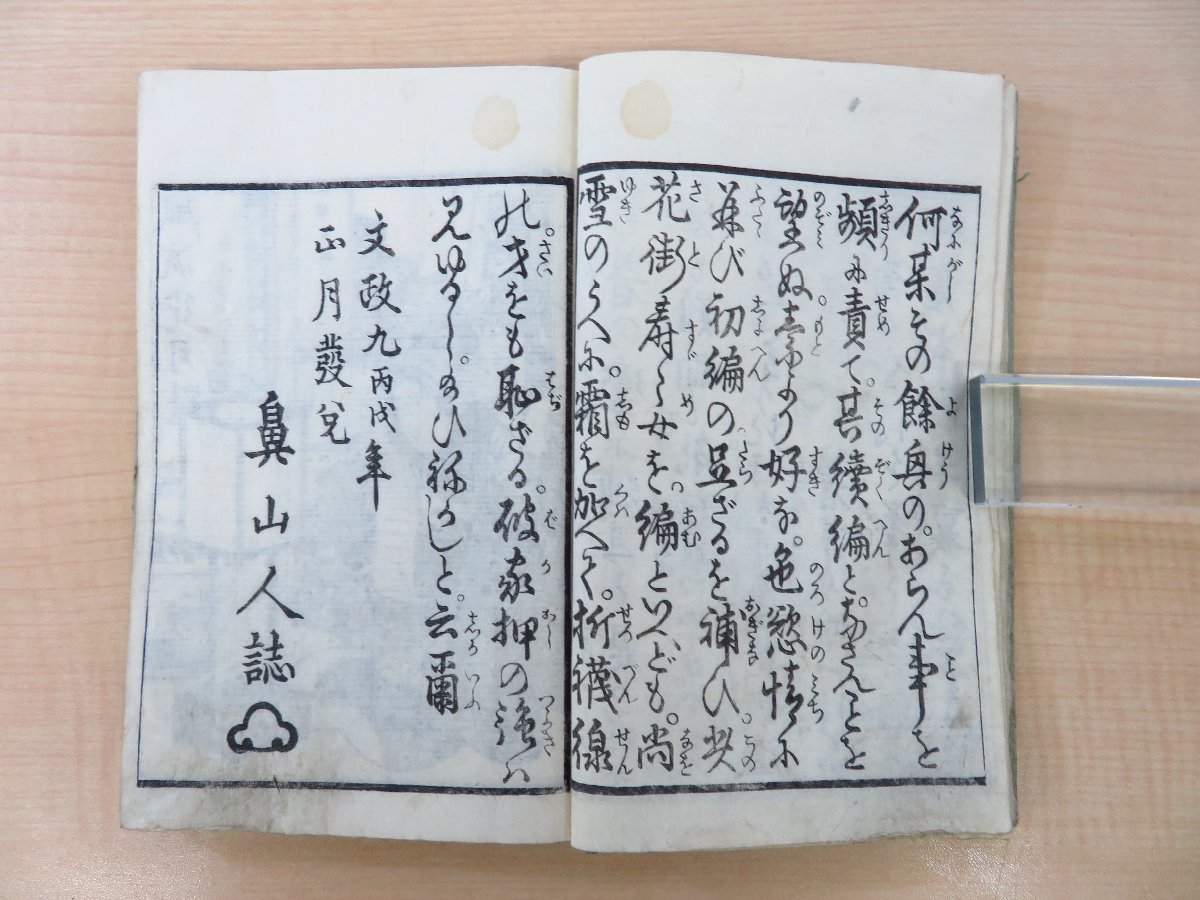 何某その餘毎の。あらん事を
頻に責て。其續編と。なさんことを
望ぬ。素より好な。色慾情に
再び初編の。足ざるを補ひ。其
花街壽々女を。編といへども。尚
雪のうへに霜を加へて。折襪線
の才をも恥ざる。破家押の強は
見ゆるし給ひねかしと。云爾
文政九丙戌年
正月發兌
鼻山人誌